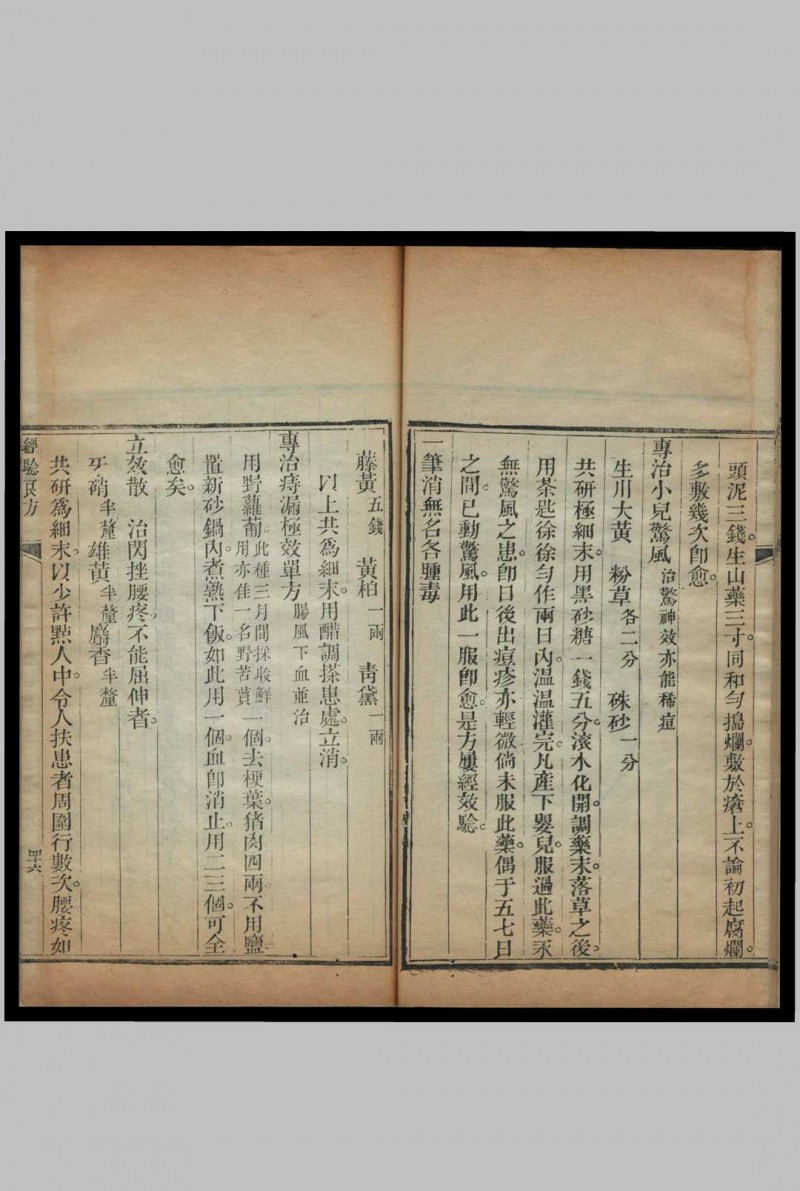 頭泥三錢。生山藥三寸。同和勻搗爛。敷於瘡上。不論初起腐爛。
多敷幾次即愈。
專治小兒驚風 治驚神效亦能稀痘
生川大黃 粉草各二分 硃砂一分
共研極細末。用黑砂糖一錢五分。滾水化開。調藥末。落草之後。
用茶匙徐徐勻作兩日內。溫溫灌完。凡產下嬰兒。服過此藥。永
無驚風之患。即日後出痘疹亦輕微。倘未服此藥。偶于五七日
之間。已動驚風。用此一服即愈。是方屢經效驗。
一筆消無名各腫毒
藤黃五錢 黃柏一兩 青黛一兩
以上共為細末。用醋調搽患處。立消。
專治痔漏極效單方 腸風下血並治
用野蘿蔔此種三月間採收鮮用亦佳一名野苦蕒一個。去梗葉。猪肉四兩。不用鹽。
置新砂鍋內。煮熟下飯。如此用一個。血即消止。用二三個。可全
愈矣。
立效散 治閃挫腰疼。不能屈伸者。
牙硝半釐 雄黃半釐 麝香半釐
共研為細末。以少許點人中。令人扶患者周圍行數次。腰疼如
經驗良方 四六